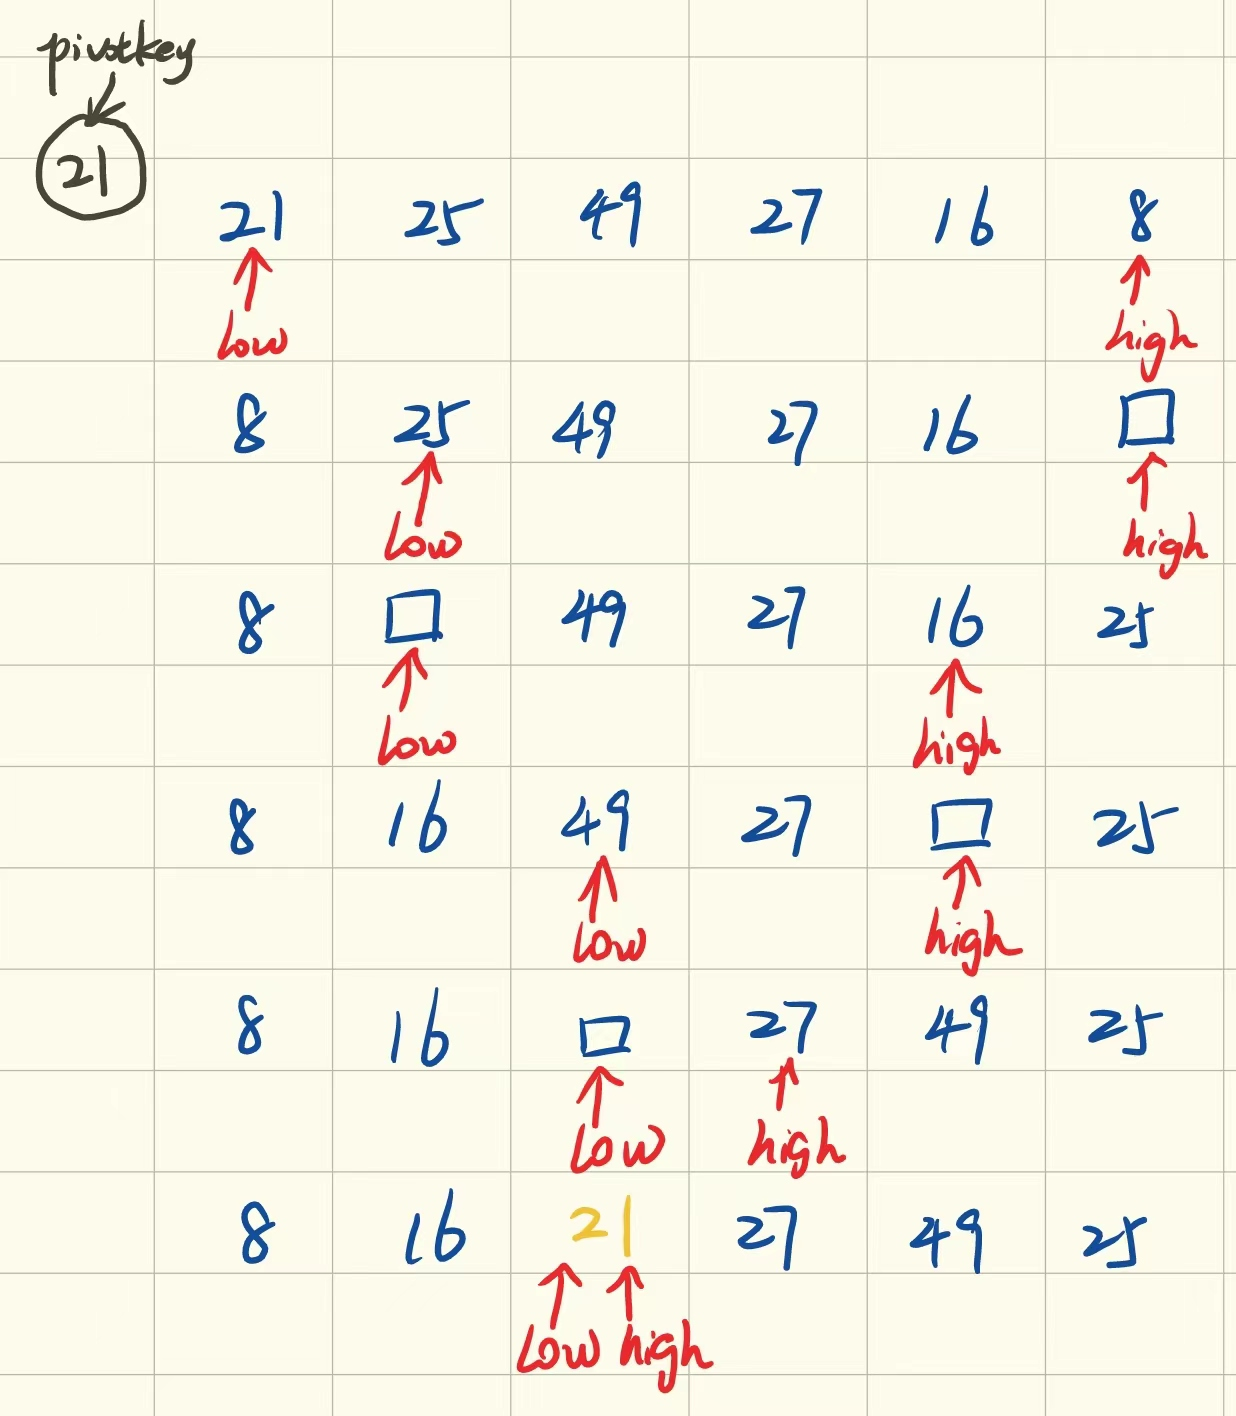 pivotkey
21
21 25 49 27 16 8
low high
8 25 49 27 16 □
low high
8 □ 49 27 16 25
low high
8 16 49 27 □ 25
low high
8 16 □ 27 49 25
low high
8 16 21 27 49 25
low high